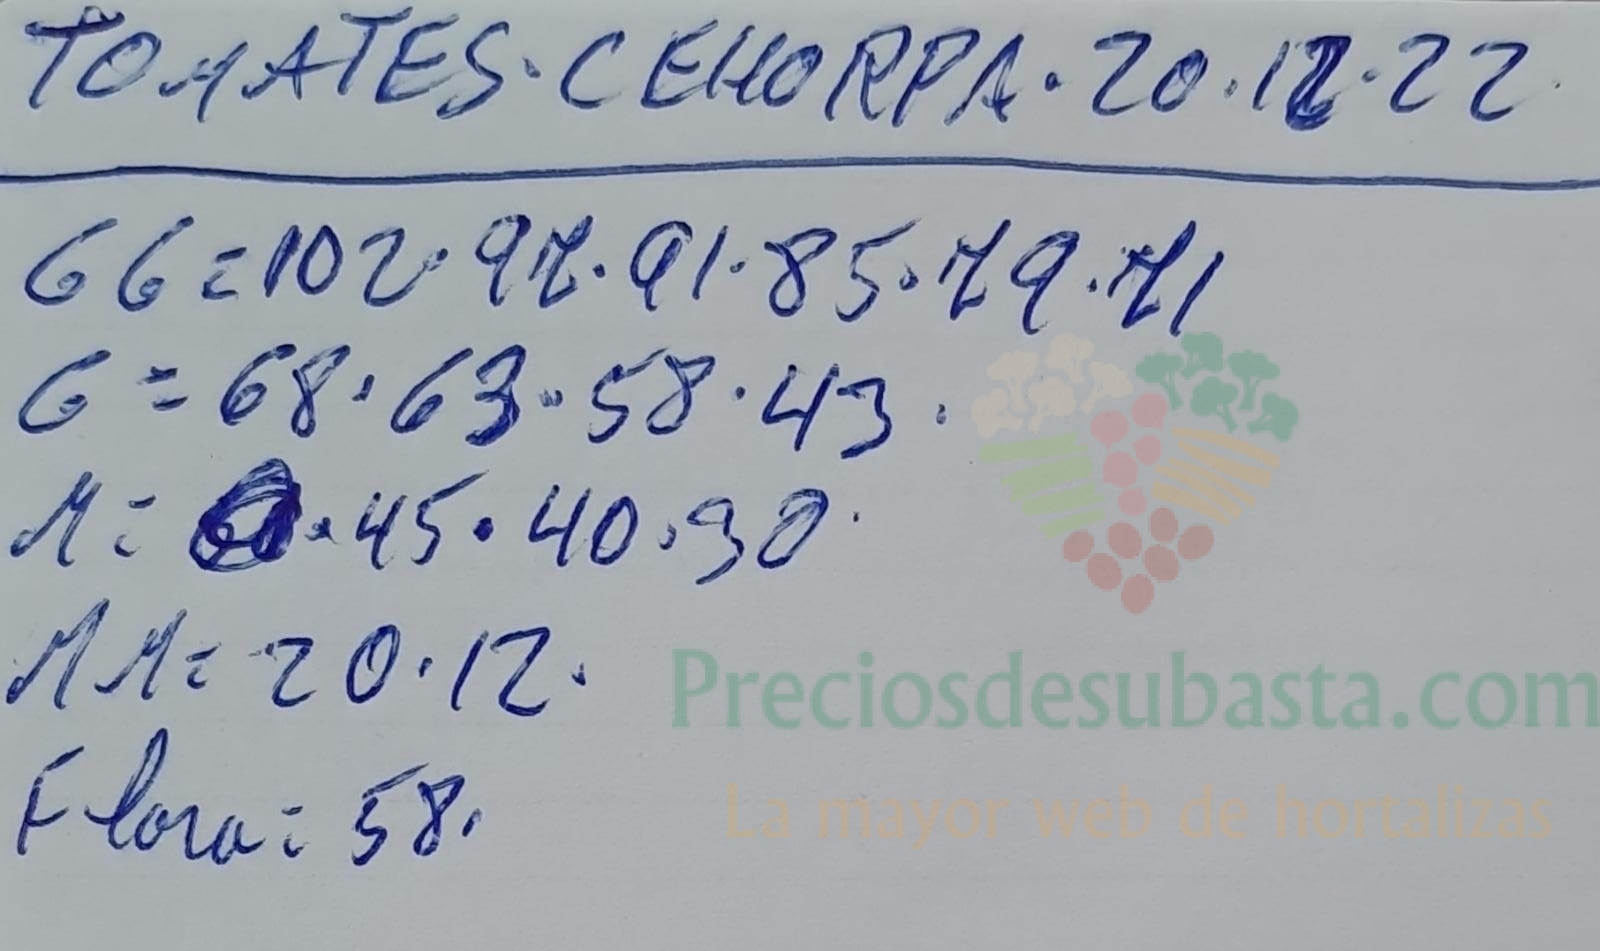 TOMATES·CEHORPA·20·12·22
GG=102·97·91·85·79·71
G=68·63·58·43·
M=·45·40·30·
MM=20·12·
Flora=58·
Preciosdesubasta.com
La mayor web de hortalizas